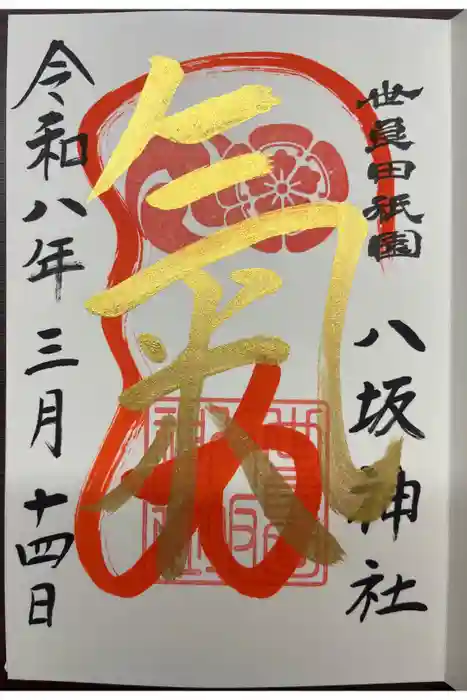 世良田祇園
八坂神社
氣
令和八年三月十四日